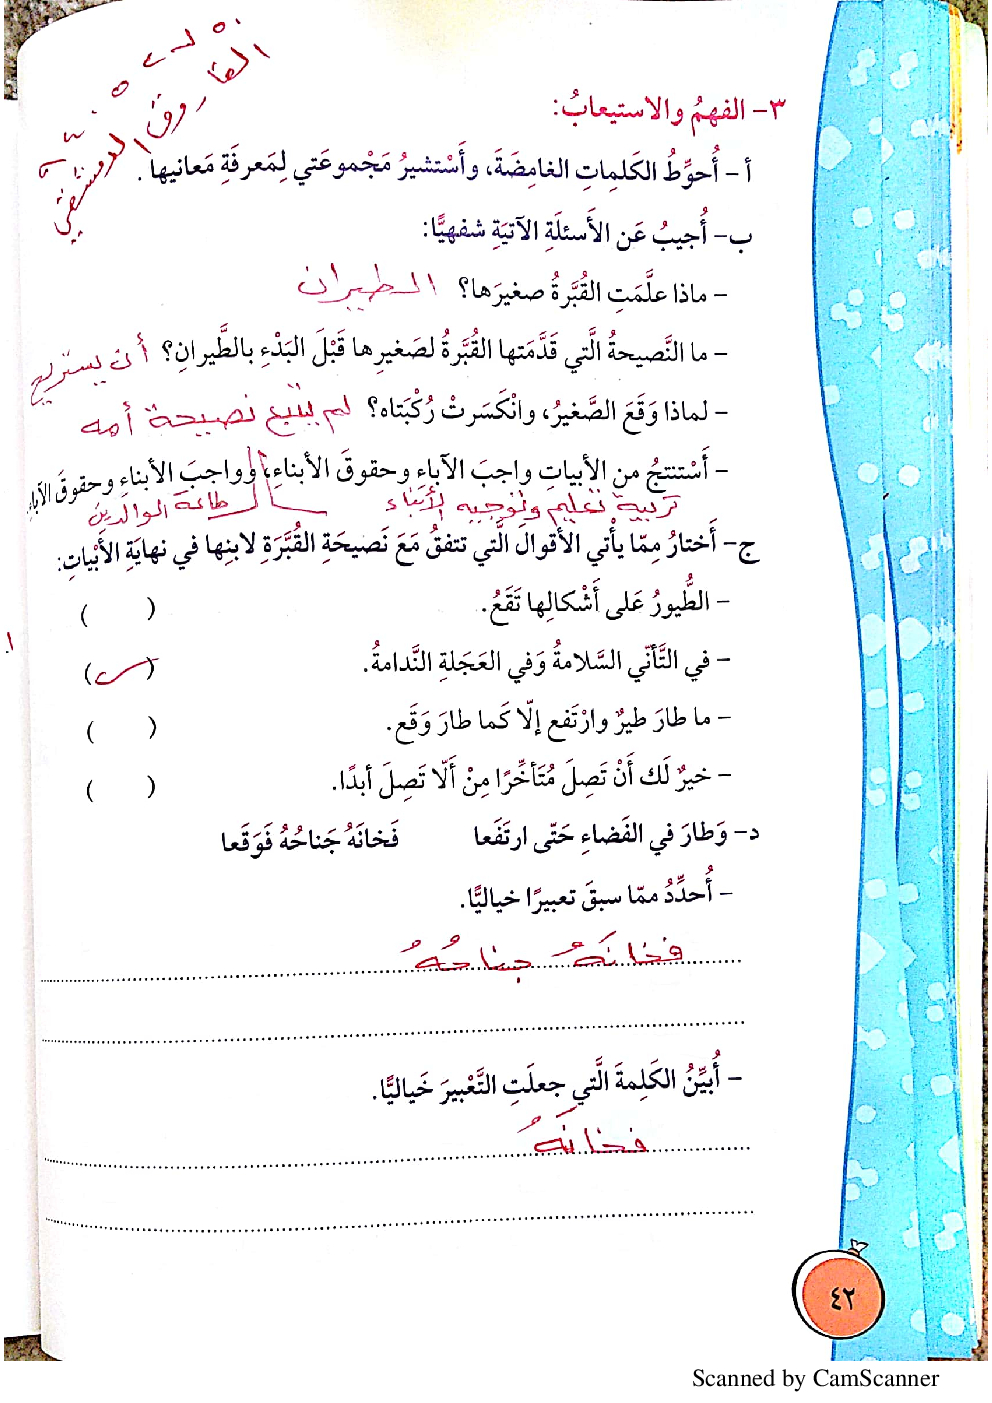 الفاروق الدمشقي
٣- الفهمُ والاستيعابُ:
أ - أُحوِّطُ الكَلِماتِ الغامِضَةَ، وأَسْتشيرُ مَجْموعَتي لِمَعرفَةِ مَعانيها .
ب- أُجيبُ عَن الأَسئلَةِ الآتيَةِ شفهيًّا:
- ماذا علَّمَتِ القُبَّرةُ صغيرَها؟ الطيران
- ما النَّصيحةُ الَّتي قَدَّمَتها القُبَّرةُ لصَغيرِها قَبْلَ البَدْءِ بالطَّيرانِ؟ أن يستريح
- لماذا وَقَعَ الصَّغيرُ، وانْكَسَرتْ رُكْبَتاه؟ لم يتبع نصيحة أمه
- أَسْتنتجُ من الأبياتِ واجبَ الآباءِ وحقوقَ الأبناءِ، وواجبَ الأبناءِ وحقوقَ الآباءِ.
تربية تعليم وتوجيه الأبناء طاعة الوالدين
ج- أَختارُ مِمّا يأْتي الأقوالَ الَّتي تتفقُ مَعَ نَصيحَةِ القُبَّرَةِ لابنِها في نهايَةِ الأبْياتِ:
- الطُّيورُ عَلى أَشْكالِها تَقَعُ. ( )
- في التَّأنّي السَّلامةُ وَفي العَجَلةِ النَّدامةُ. ( )
- ما طارَ طيرٌ وارْتَفع إلّا كَما طارَ وَقَع. ( )
- خيرٌ لَك أَنْ تَصِلَ مُتَأخِّرًا مِنْ أَلّا تَصِلَ أبدًا. ( )
د- وَطارَ في الفَضاءِ حَتّى ارتَفَعا فَخانَهُ جَناحُهُ فَوَقَعا
- أُحدِّدُ ممّا سبقَ تعبيرًا خياليًّا.
فخانَهُ جناحُهُ
- أُبيِّنُ الكَلِمةَ الَّتي جعلَتِ التَّعْبيرَ خَياليًّا.
فخانَهُ
٤٢
Scanned by CamScanner